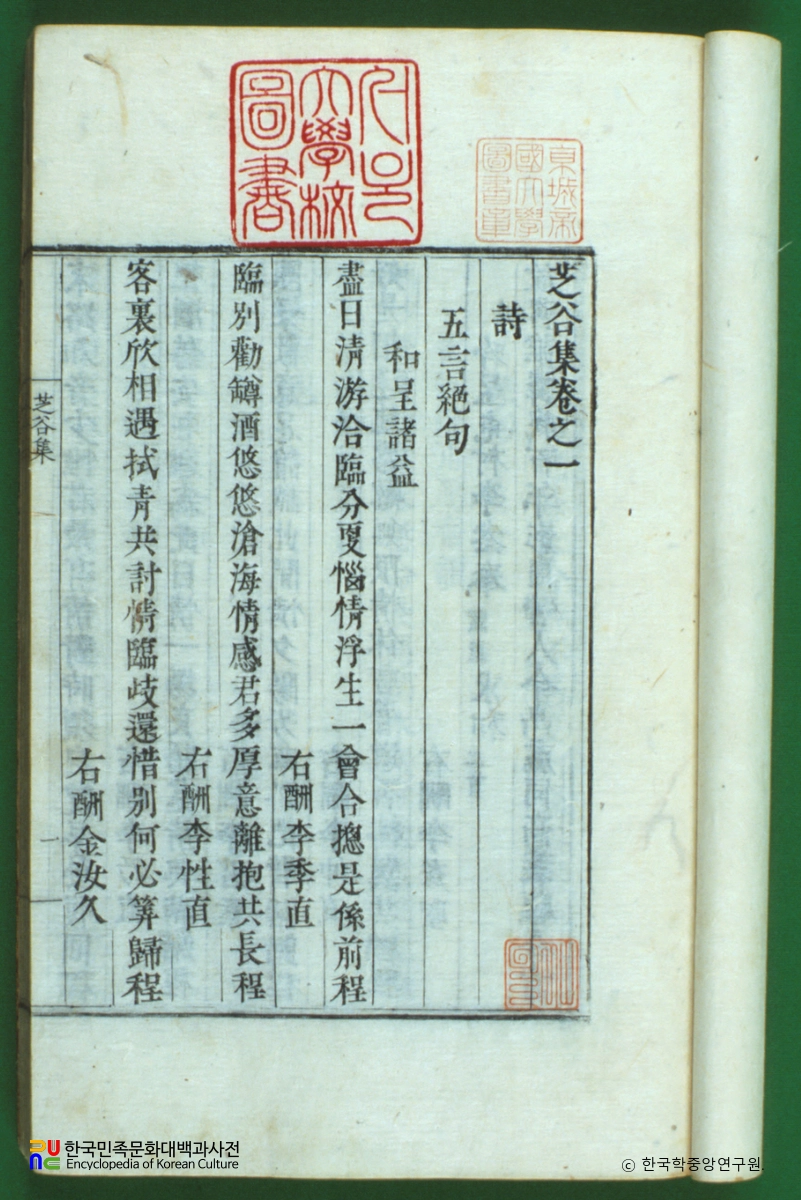 芝谷集卷之一
詩
五言絕句
和呈諸益
盡日淸游洽臨分更惱情浮生一會合摠是係前程
右酬李季直
臨別勸罇酒悠悠滄海情感君多厚意離抱共長程
右酬李性直
客裏欣相遇拭靑共討情臨歧還惜別何必筭歸程
右酬金汝久
芝谷集
一
京城帝
國大學
圖書章
大學校
圖書
한국민족문화대백과사전
Encyclopedia of Korean Culture
© 한국학중앙연구원